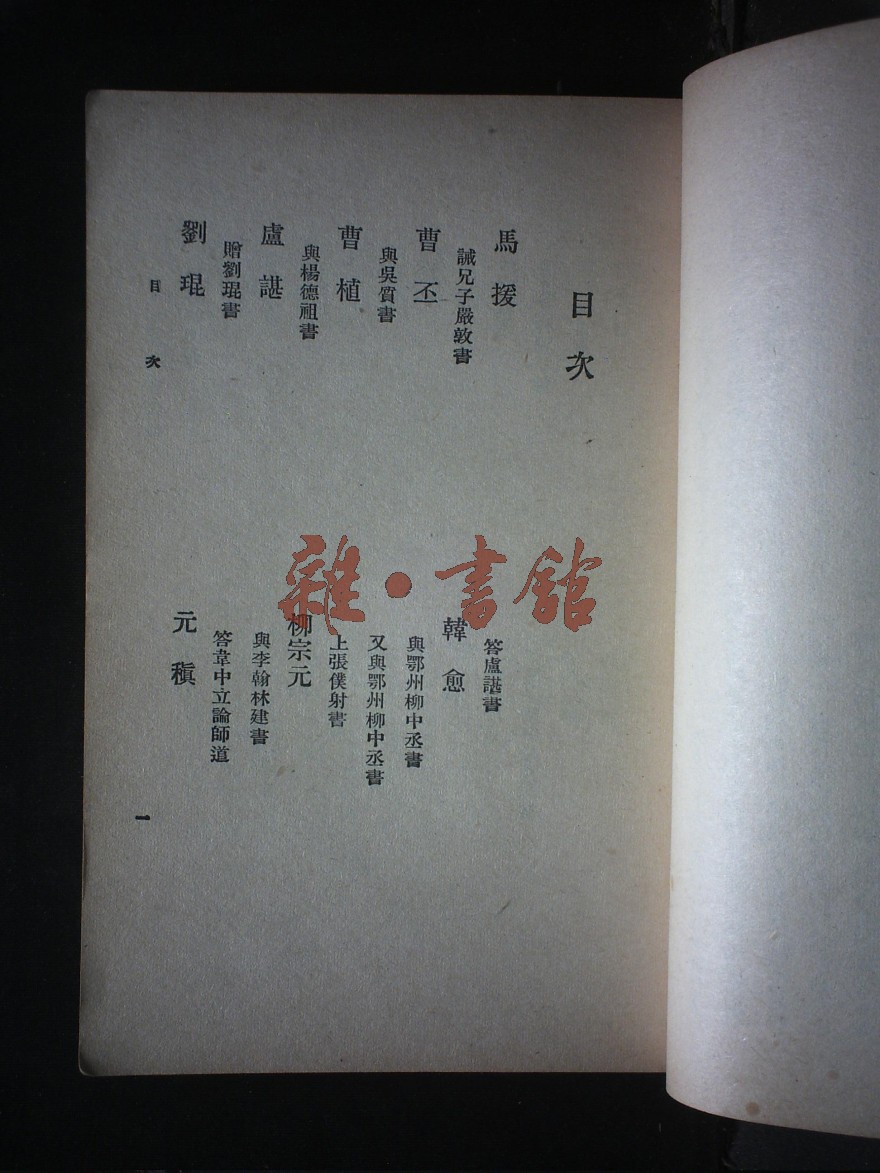 目次
馬援
誡兄子嚴敦書
曹丕
與吳質書
曹植
與楊德祖書
盧諶
贈劉琨書
劉琨
答盧諶書
韓愈
與鄂州柳中丞書
又與鄂州柳中丞書
上張僕射書
柳宗元
與李翰林建書
答韋中立論師道
元稹
目次
一
雜·書館